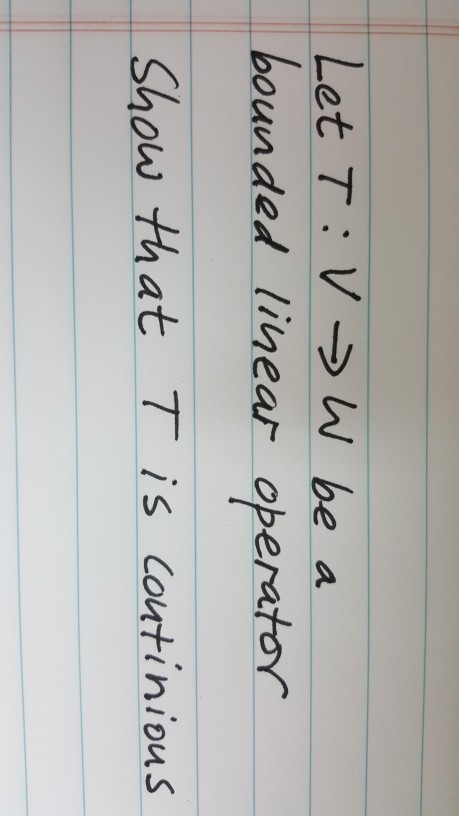 Let T : V → W be a
bounded linear operator
Show that T is continious